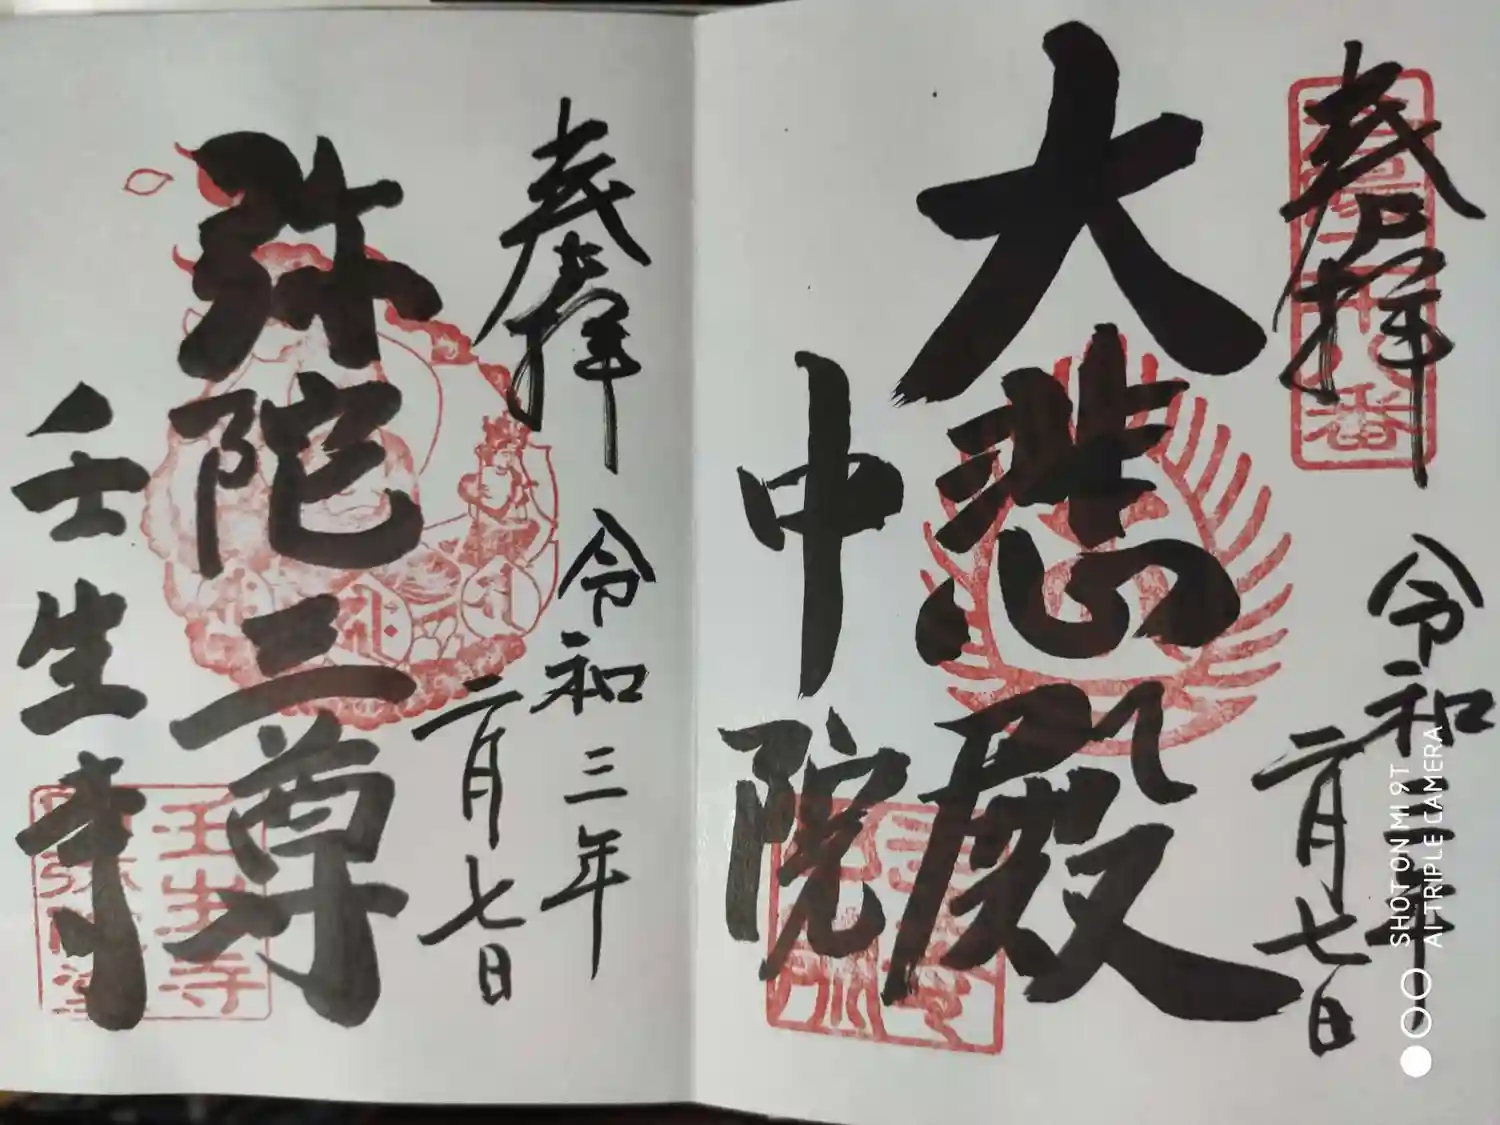 奉拝
令和三年
二月七日
大悲殿
中院
奉拝
令和三年
二月七日
弥陀三尊
壬生寺
壬生寺
SHOT ON MI 9T
AI TRIPLE CAMERA